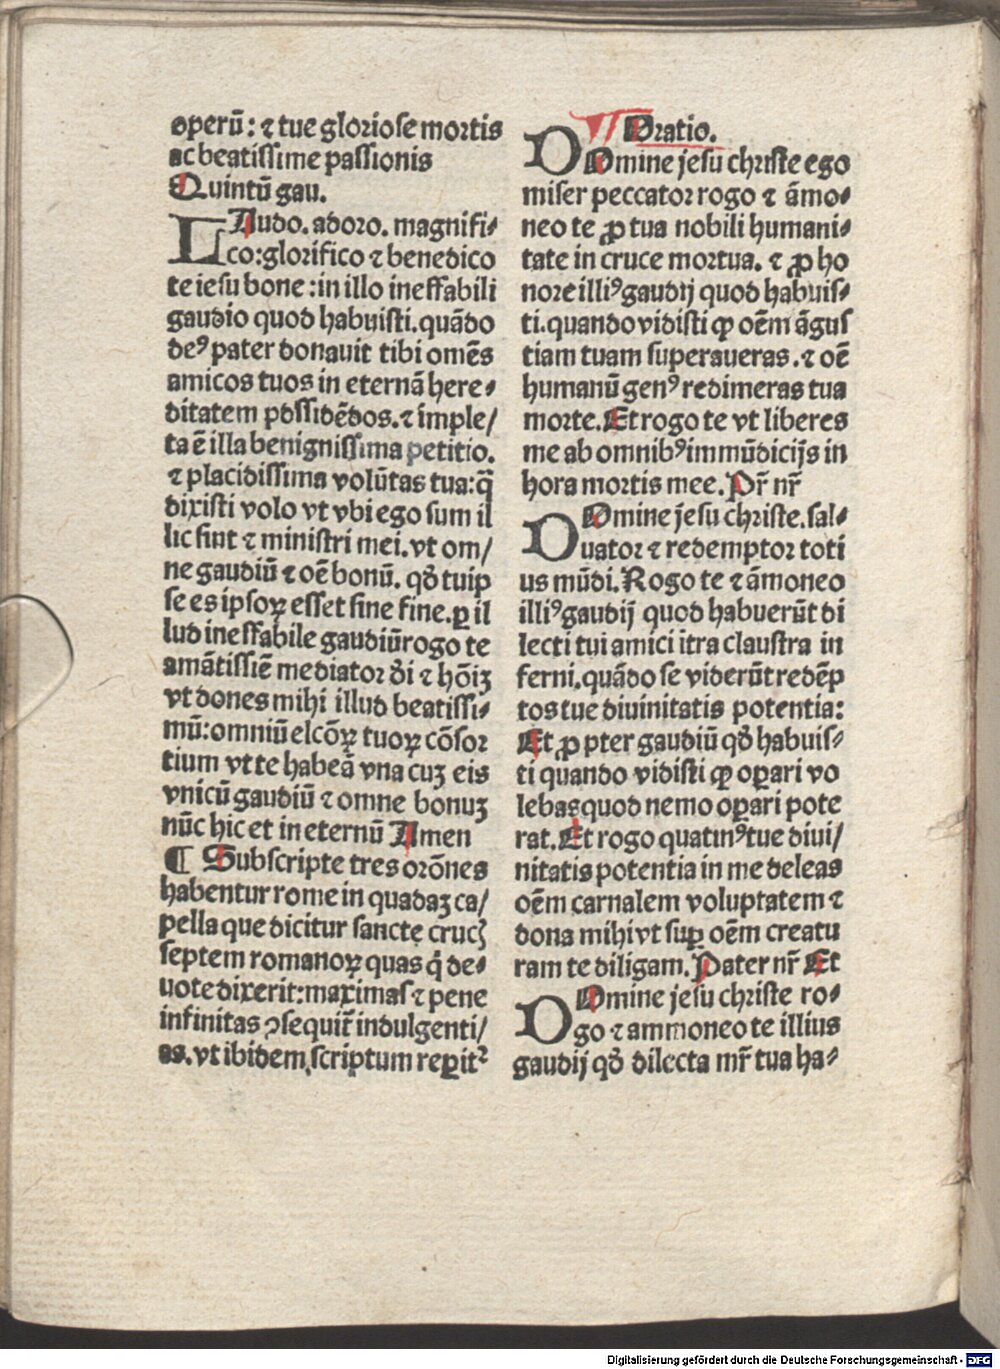 operū: ⁊ tue gloriose mortis
ac beatissime passionis
Quintū gau.
LAudo. adoro. magnifi⸗
co: glorifico ⁊ benedico
te iesu bone: in illo ineffabili
gaudio quod habuisti. quādo
deꝰ pater donauit tibi omēs
amicos tuos in eternā here⸗
ditatem possidēdos. ⁊ īmple/
ta ē illa benignissima petitio.
⁊ placidissima volūtas tua: q̄
dixisti volo vt vbi ego sum il
lic sint ⁊ ministri mei. vt om/
ne gaudiū ⁊ oē bonū. qđ tu ip
se es ipsoꝝ esset sine fine. ꝑ il
lud ineffabile gaudiū rogo te
amātissiē mediator đi ⁊ hōiꝫ
vt dones mihi illud beatissi⸗
mū: omniū elcōꝝ tuoꝝ cōsor
tium vt te habeā vna cuꝫ eis
vnicū gaudiū ⁊ omne bonuꝫ
nūc hic et in eternū Amen
¶ Subscripte tres orōnes
habentur rome in quadaꝫ ca/
pella que dicitur sancte crucꝭ
septem romanoꝝ quas q̄ de⸗
uote dixerit: maximas ⁊ pene
infinitas ↄsequit̄ indulgenti/
as. vt ibidem scriptum reꝑit᷑
¶ Oratio.
DOmine jesu christe ego
miser peccator rogo ⁊ āmo⸗
neo te ꝓ tua nobili humani⸗
tate in cruce mortua. ⁊ ꝓ ho
nore illiꝰ gaudij quod habuis⸗
ti. quando vidisti ꝙ oēm āgus
tiam tuam superaueras. ⁊ oē
humanū genꝰ redimeras tua
morte. Et rogo te vt liberes
me ab omnibꝰ immūdicijs in
hora mortis mee. Pr̄ nr̄
DOmine jesu christe. sal⸗
uator ⁊ redemptor toti
us mūdi. Rogo te ⁊ āmoneo
illiꝰ gaudij quod habuerūt di
lecti tui amici ītra claustra in
ferni. quādo se viderūt redēp
tos tue diuinitatis potentia:
Et ꝓpter gaudiū qđ habuis⸗
ti quando vidisti ꝙ oꝑari vo
lebas quod nemo oꝑari pote
rat. Et rogo quatinꝰ tue diui/
nitatis potentia in me deleas
oēm carnalem voluptatem ⁊
dona mihi vt suꝑ oēm creatu
ram te diligam. Pater nr̄ Et
DOmine jesu christe ro⸗
go ⁊ ammoneo te illius
gaudij qđ dilecta mr̄ tua ha⸗
Digitalisierung gefördert durch die Deutsche Forschungsgemeinschaft - DFG